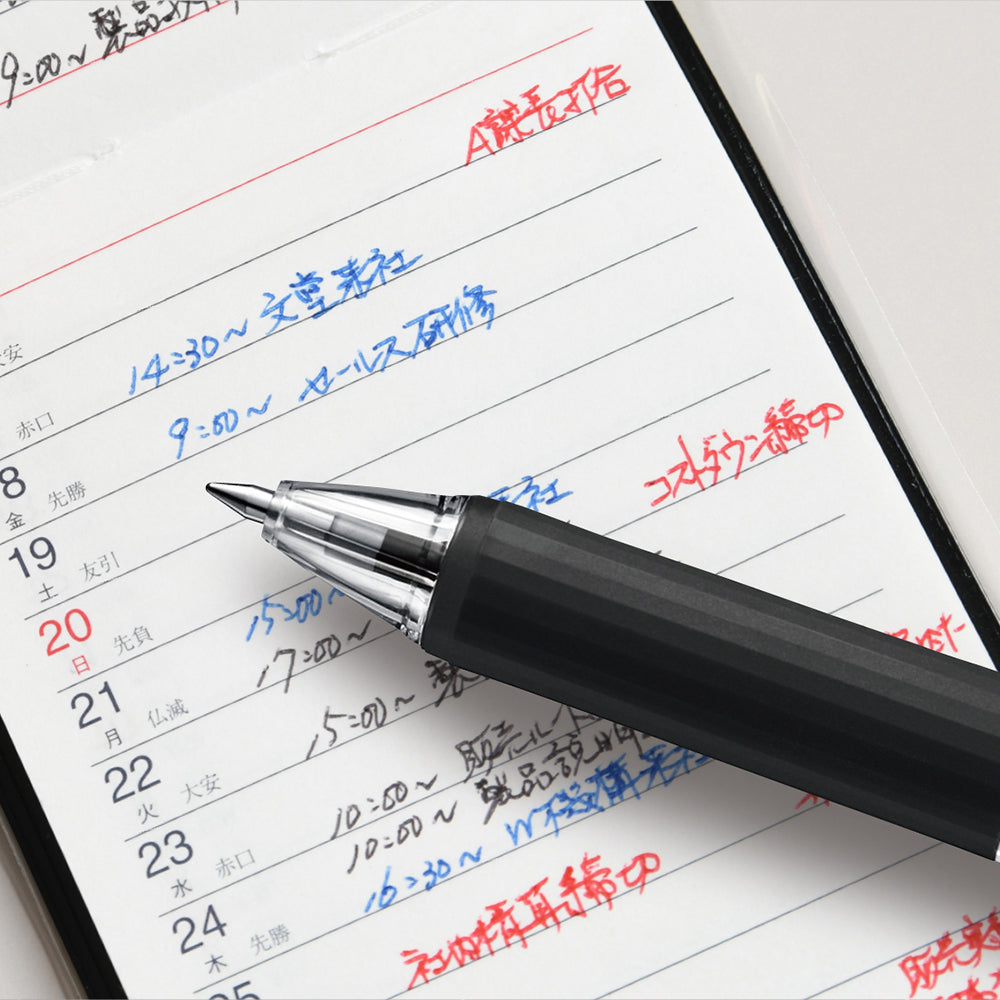 9:00~ 製品
A課長打合
大安
14:30~ 文堂来社
赤口
9:00~ セールス研修
8 金 先勝
コストダウン締切
19 土 友引
来社
20 日 先負
15:00~
21 月 仏滅
17:00~
22 火 大安
15:00~ 製
23 水 赤口
10:00~ 販売ルート
10:00~ 製品説明
24 木 先勝
16:30~ 来社
社内 締切
25
販売